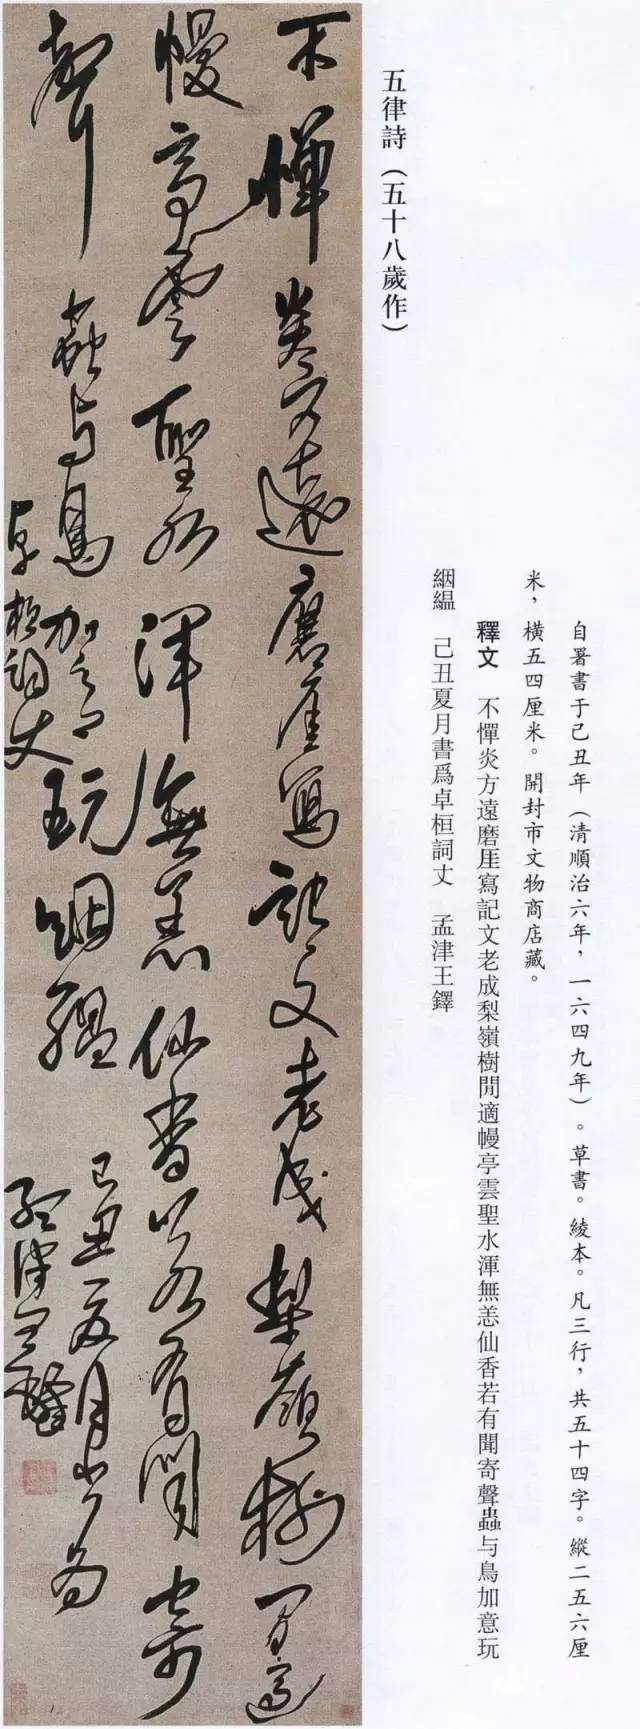 自署書于己丑年（清順治六年，一六四九年）。草書。綾本。凡三行，共五十四字。縱二五六厘
米，橫五四厘米。開封市文物商店藏。
釋文 不憚炎方遠磨厓寫記文老成梨嶺樹閒適幔亭雲聖水渾無恙仙香若有聞寄聲蟲与鳥加意玩
絪縕 己丑夏月書爲卓桓詞丈 孟津王鐸
五律詩（五十八歲作）
不憚炎方遠磨厓寫記文老成梨嶺樹閒適
幔亭雲聖水渾無恙仙香若有聞寄
聲蟲与鳥加意玩絪縕 己丑夏月書爲
卓桓詞丈 孟津王鐸